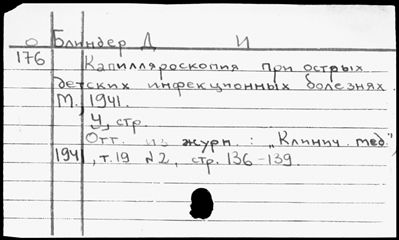 О Блиндер Д И
176 Капилляроскопия при острых
детских инфекционных болезнях.
М., 1941.
4, стр.
Отт. из журн.: „Клинич. мед."
1941, т. 19 №2, стр. 136-139.